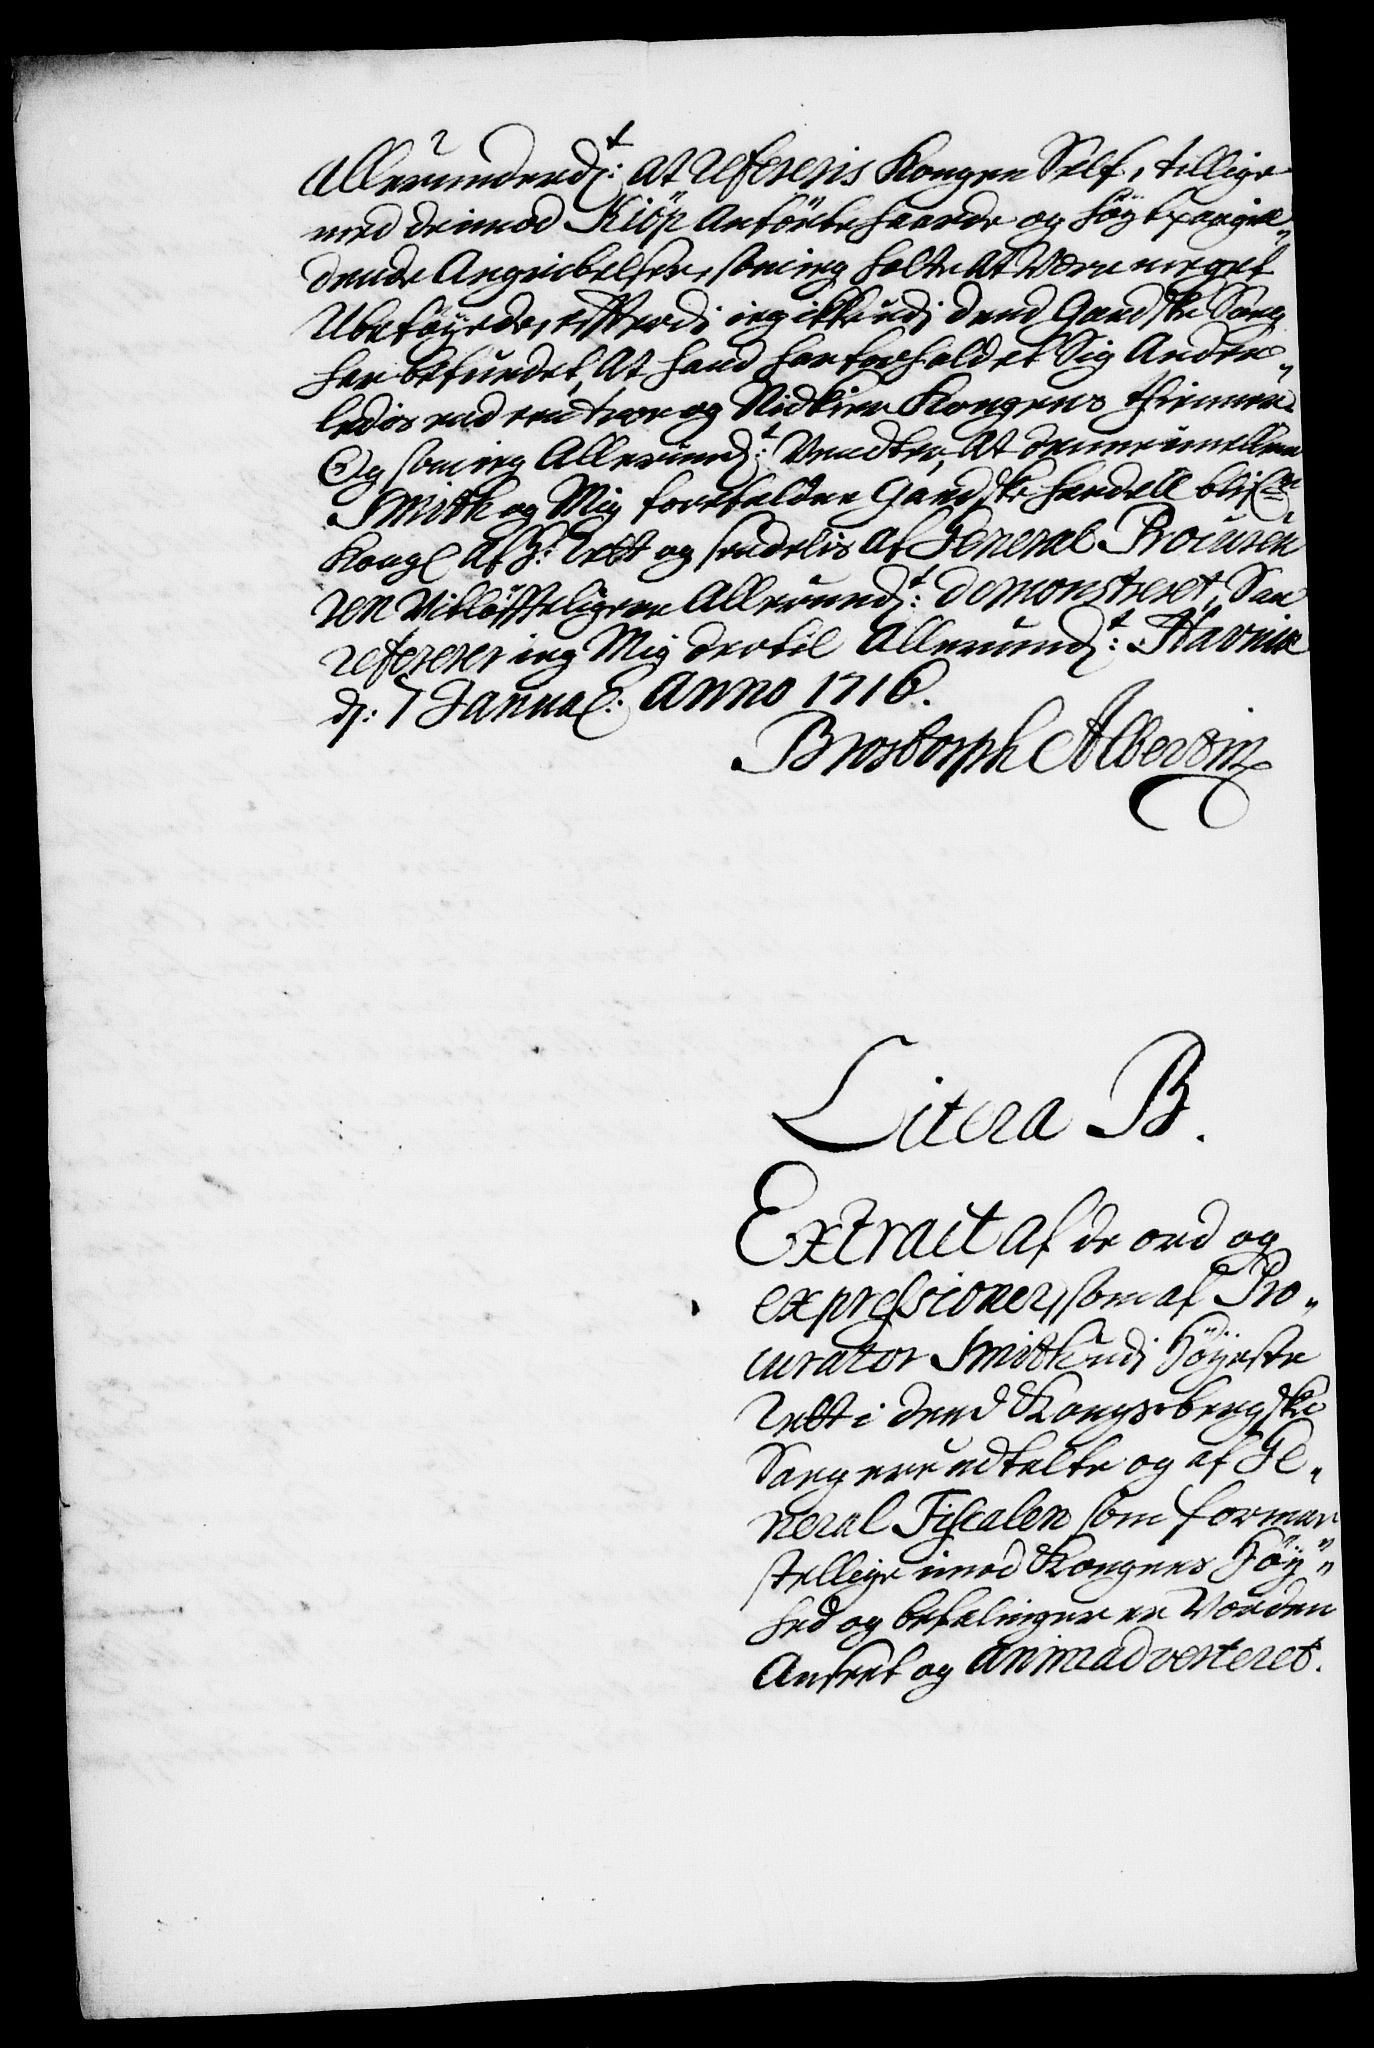 Allerunderd:t at refereris Kongen Self, tillige
med deimod Kiöp anförte haarde og höyt paagiel„
dende Angribelser, som ieg holder at Være meget
Ubeföyede, efftterdj ieg icke udj dend Gandske Sag
har befundet, At hand har forholdet Sig Ander„
ledis end en troe og Nidkier Kongens thienner.
Og som ieg Allerund:t Vendter, At denne imellem
Smith og Mig forefaldne Gandske handell blifr
Kongl af H: Rett og sendelis af General Procureu
ren Vitlöfftigere Allerund:t demonstreret, Saa
referer ieg Mig dertil Allerund:t Havniæ
d: 7 Janua: Anno 1716.
Brostorph Albertin
Litera B.
Extract af de ord og
expressioner, som af Pro„
curator Smith udj Höyeste
Rett i dend Kongsbergske
Sag ere udtalte og af Ge„
neral Fiscalen som formas
stellige imod Kongens Höy„
hed og befalinger er Vorden
Anseet og animadverteret.